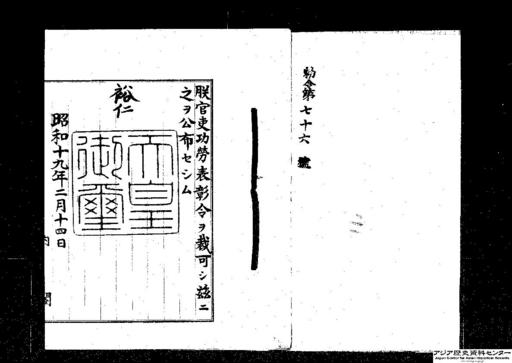 勅令第七十六號
朕官吏功勞表彰令ヲ裁可シ茲ニ
之ヲ公布セシム
裕仁
天皇
御璽
昭和十九年二月十四日
内閣
アジア歴史資料センター
Japan Center for Asian Historical Records